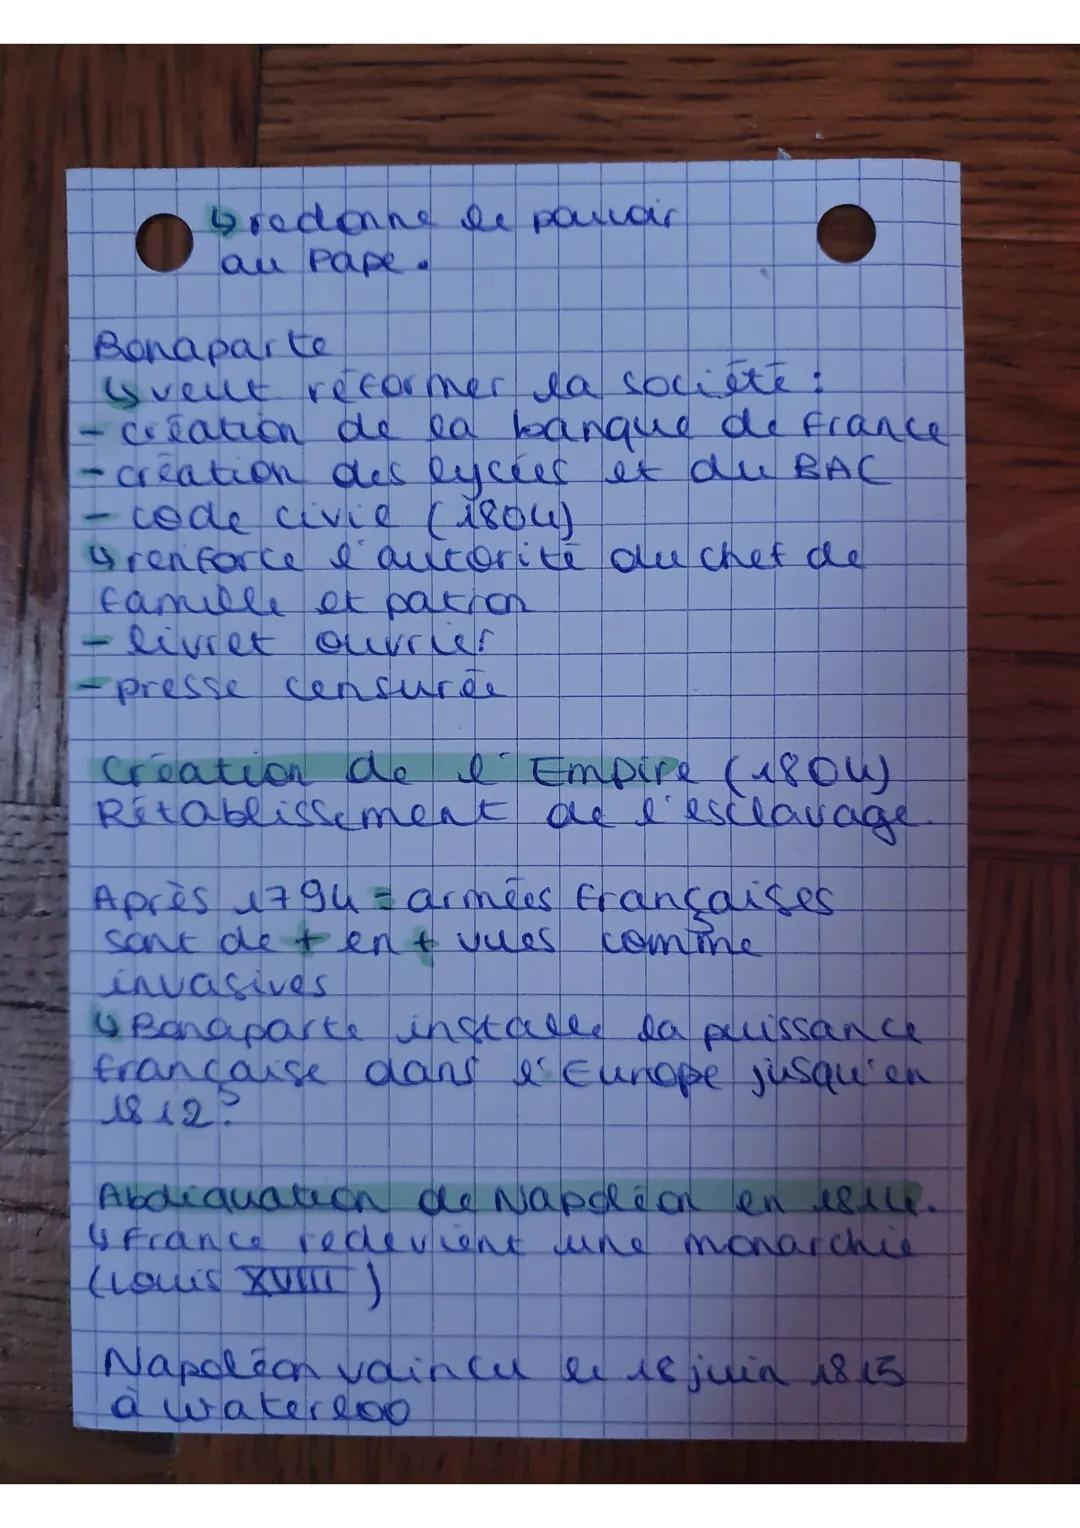 ↳ redonne le pouvoir
au Pape.
Bonaparte
↳ veut réformer la société :
- création de la banque de france
- création des lycées et du BAC
- code civil (1804)
↳ renforce l'autorité du chef de
famille et patron
- livret ouvrier
- presse censurée
Création de l'Empire (1804)
Rétablissement de l'esclavage.
Après 1794 = armées françaises
sont de + en + vues comme
invasives
↳ Bonaparte installe la puissance
française dans l'Europe jusqu'en
1812.
Abdiquation de Napoléon en 1814.
↳ France redevient une monarchie
(Louis XVIII)
Napoléon vaincu le 18 juin 1815
à Waterloo